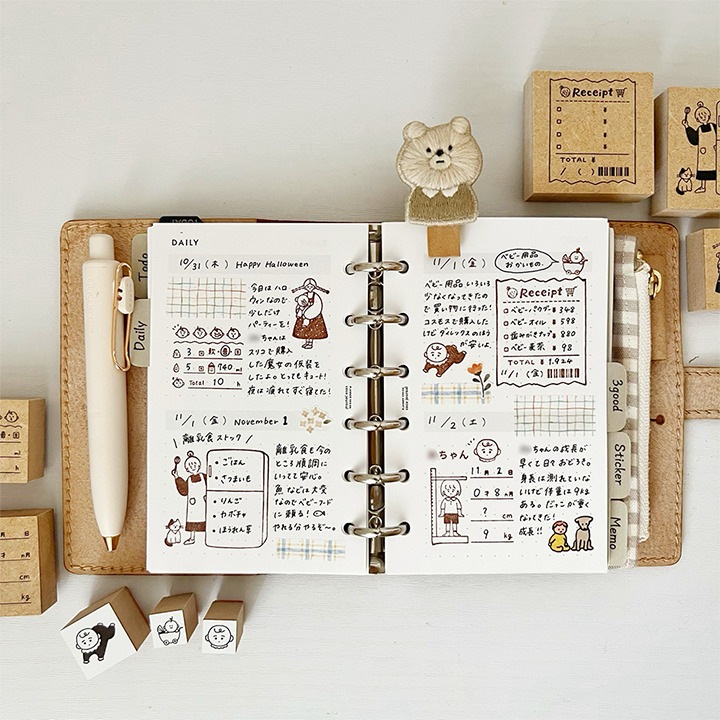 Receipt
TOTAL ¥
/ ( )
TODAY
Todo
Daily
DAILY
10/31(木) Happy Halloween
今日はハロ
ウィンなので
少しだけ
パーティーを!
ちゃんは
スリコで購入
した魔女の仮装を
したよ。とってもキュート!
夜は疲れてすぐ寝てた!
3 回
5 回 740 ml
Total 10 h
11/1(金) November 1
\ 離乳食ストック /
・ごはん
・さつまいも
・りんご
・カボチャ
・ほうれん草
離乳食も今の
ところ順調に
いってて安心。
魚などは大変
なのでベビーフード
に頼る!
やれる分やるぞ〜。
11/1(金)
ベビー用品
おかいもの。
ベビー用品いろいろ
少なくなってきたの
で買い物に行った!
コスモスで購入した
けどダイレックスのほう
が安いよ。
Receipt
ベビーパウダー ¥348
ベビーオイル ¥598
歯みがきナップ ¥880
ベビー麦茶 ¥98
TOTAL ¥1,924
11/1(金)
11/2(土)
ちゃん
11月2日
0才8ヵ月
? cm
9 kg
ちゃんの成長が
早くて日々おどろき。
身長は測れていな
いけど体重は9kg
ある。だっこが重く
なってきた!
成長!!
3good
Sticker
Memo
回
ml
h
日
ヵ月
cm
kg